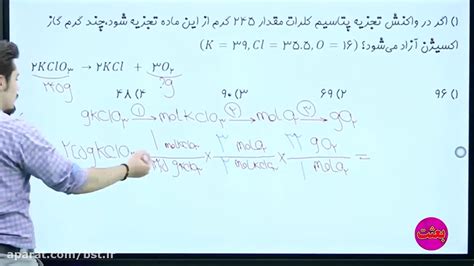 ۱) اگر در واکنش تجزیه پتاسیم کلرات مقدار ۲۴۵ گرم از این ماده تجزیه شود، چند گرم گاز
اکسیژن آزاد می‌شود؟ (K = ۳۹, Cl = ۳۵.۵, O = ۱۶)
۲KClO۳ → ۲KCl + ۳O۲
۲۴۵g ?g
۱) ۹۶ ۲) ۶۹ ۳) ۹۰ ۴) ۴۸
gKClO۳ ① → molKClO۳ ② → molO۲ ③ → gO۲
۲۴۵gKClO۳ × ۱ molKClO۳ / gKClO۳ × ۳ molO۲ / ۲ molKClO۳ × ۳۲ gO۲ / ۱ molO۲ =
بعثت
aparat.com/bst.ir